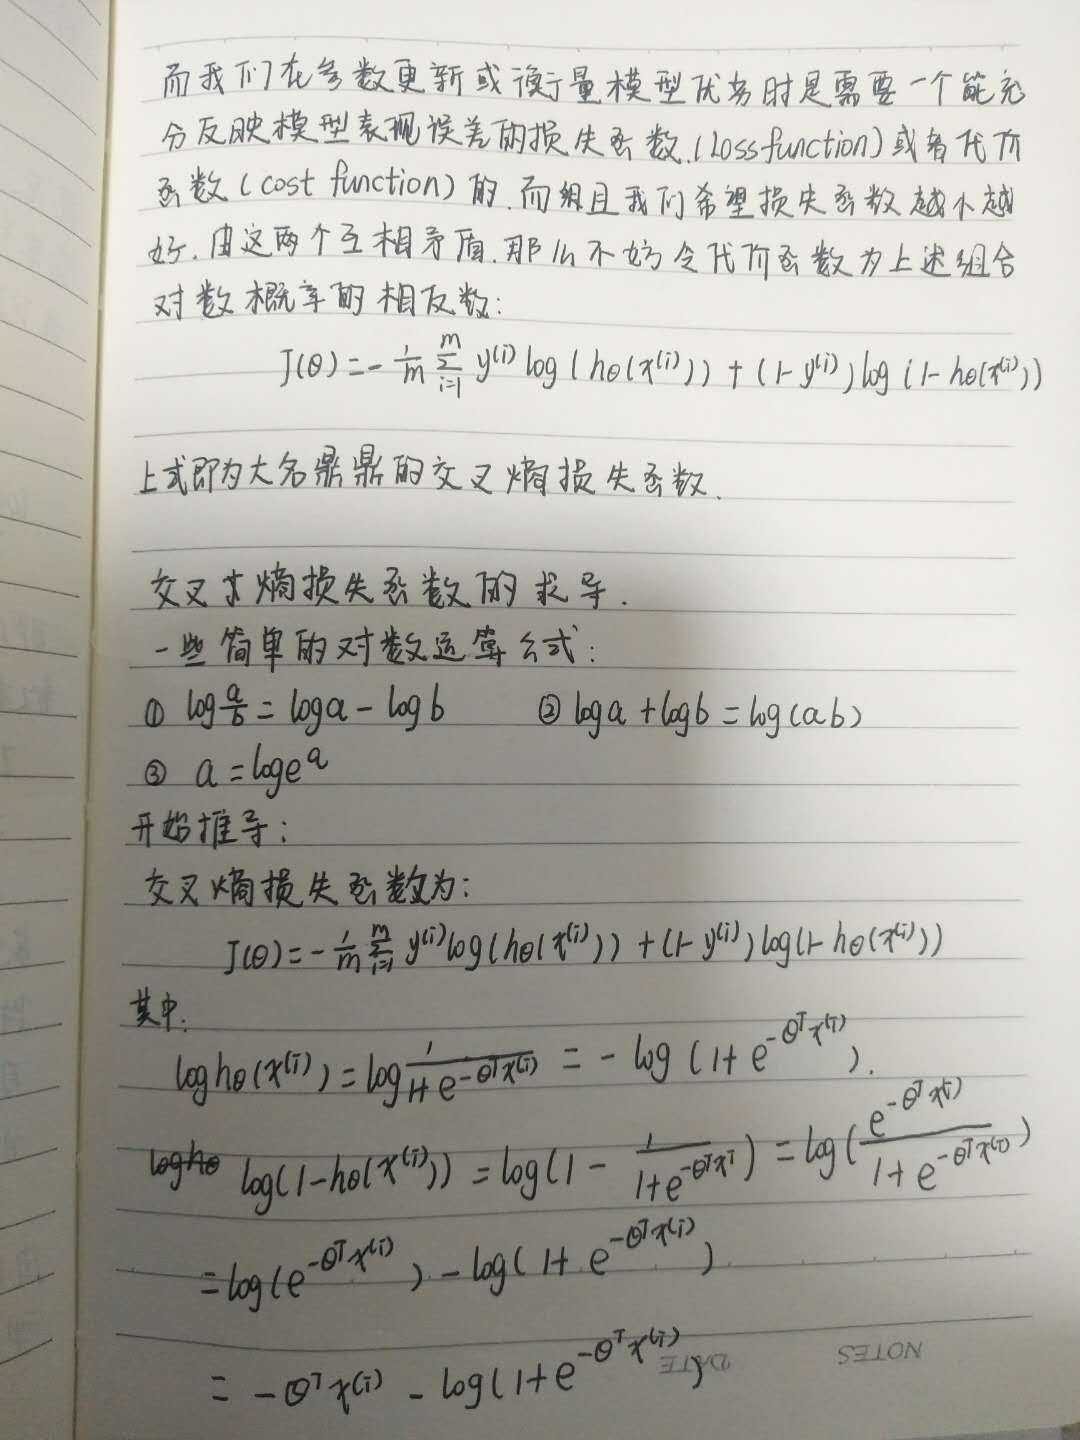 而我们在参数更新或衡量模型优劣时是需要一个能充
分反映模型表现误差的损失函数.(Loss function)或者代价
函数(cost function)的.而且我们希望损失函数越小越
好.由这两个互相矛盾.那么不妨令代价函数为上述组合
对数概率的相反数:
J(θ)=-1/m Σ_{i=1}^{m} y^{(i)} log(hθ(x^{(i)}))+(1-y^{(i)})log(1-hθ(x^{(i)}))
上式即为大名鼎鼎的交叉熵损失函数.
交叉熵损失函数的求导.
一些简单的对数运算公式:
① log a/b = log a - log b ② log a + log b = log(ab)
③ a = log e^a
开始推导:
交叉熵损失函数为:
J(θ)=-1/m Σ_{i=1}^{m} y^{(i)} log(hθ(x^{(i)}))+(1-y^{(i)})log(1-hθ(x^{(i)}))
其中.
log hθ(x^{(i)}) = log 1/(1+e^{-θ^T x^{(i)}}) = -log(1+e^{-θ^T x^{(i)}}).
log(1-hθ(x^{(i)})) = log(1 - 1/(1+e^{-θ^T x^T})) = log(e^{-θ^T x^{(i)}}/(1+e^{-θ^T x^{(i)}}))
= log(e^{-θ^T x^{(i)}}) - log(1+e^{-θ^T x^{(i)}})
= -θ^T x^{(i)} - log(1+e^{-θ^T x^{(i)}})
DATE NOTES